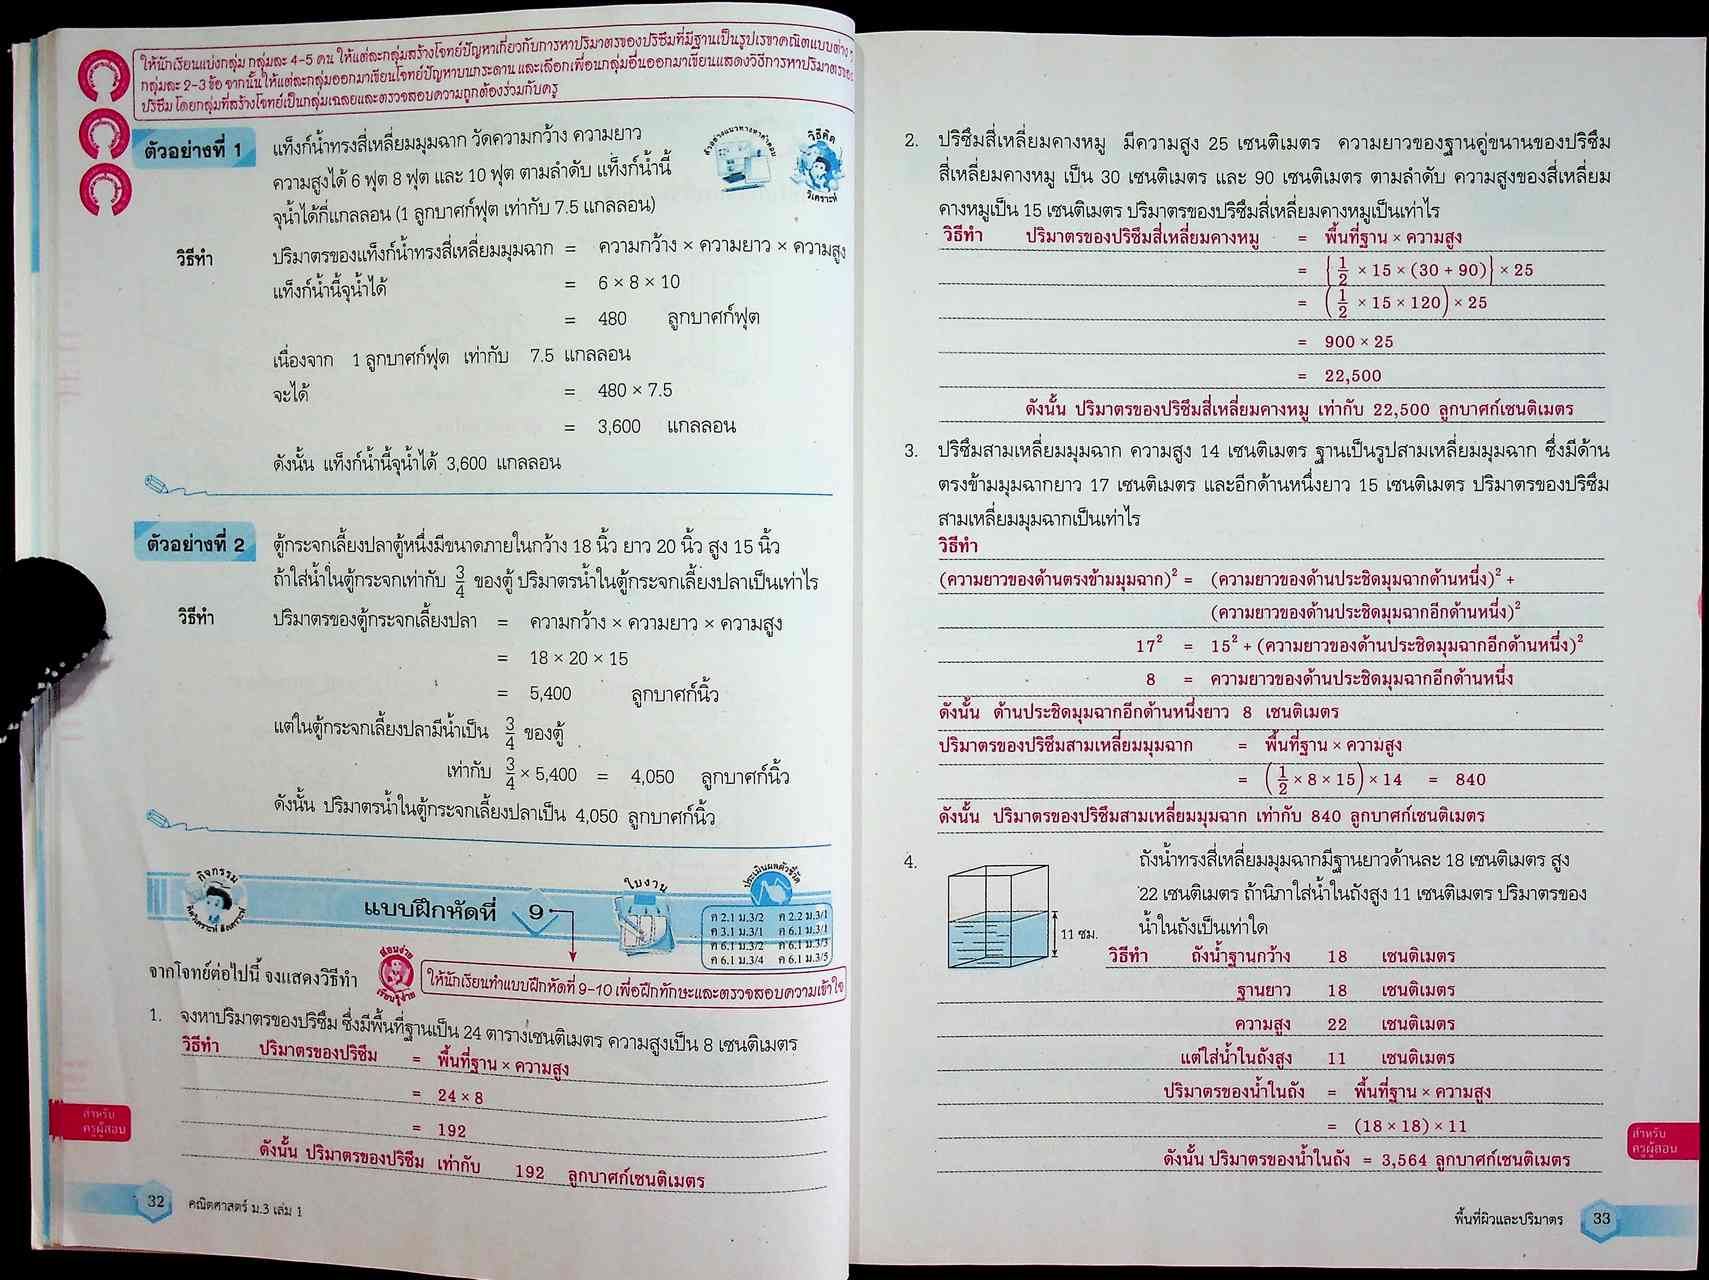 ให้นักเรียนแบ่งกลุ่ม กลุ่มละ 4-5 คน ให้แต่ละกลุ่มสร้างโจทย์ปัญหาเกี่ยวกับการหาปริมาตรของปริซึมที่มีฐานเป็นรูปเรขาคณิตแบบต่าง ๆ
กลุ่มละ 2-3 ข้อ จากนั้นให้แต่ละกลุ่มออกมาเขียนโจทย์ปัญหาบนกระดาน และเลือกเพื่อนกลุ่มอื่นออกมาเขียนแสดงวิธีการหาปริมาตรของ
ปริซึม โดยกลุ่มที่สร้างโจทย์เป็นกลุ่มเฉลยและตรวจสอบความถูกต้องร่วมกับครู
ตัวอย่างที่ 1 แท็งก์น้ำทรงสี่เหลี่ยมมุมฉาก วัดความกว้าง ความยาว
ความสูงได้ 6 ฟุต 8 ฟุต และ 10 ฟุต ตามลำดับ แท็งก์น้ำนี้
จุน้ำได้กี่แกลลอน (1 ลูกบาศก์ฟุต เท่ากับ 7.5 แกลลอน)
ตัวอย่างแนวทางหาคำตอบ
วิธีคิด
วิเคราะห์
วิธีทำ ปริมาตรของแท็งก์น้ำทรงสี่เหลี่ยมมุมฉาก = ความกว้าง × ความยาว × ความสูง
แท็งก์น้ำนี้จุน้ำได้ = 6 × 8 × 10
= 480 ลูกบาศก์ฟุต
เนื่องจาก 1 ลูกบาศก์ฟุต เท่ากับ 7.5 แกลลอน
จะได้ = 480 × 7.5
= 3,600 แกลลอน
ดังนั้น แท็งก์น้ำนี้จุน้ำได้ 3,600 แกลลอน
ตัวอย่างที่ 2 ตู้กระจกเลี้ยงปลาตู้หนึ่งมีขนาดภายในกว้าง 18 นิ้ว ยาว 20 นิ้ว สูง 15 นิ้ว
ถ้าใส่น้ำในตู้กระจกเท่ากับ 3/4 ของตู้ ปริมาตรน้ำในตู้กระจกเลี้ยงปลาเป็นเท่าไร
วิธีทำ ปริมาตรของตู้กระจกเลี้ยงปลา = ความกว้าง × ความยาว × ความสูง
= 18 × 20 × 15
= 5,400 ลูกบาศก์นิ้ว
แต่ในตู้กระจกเลี้ยงปลามีน้ำเป็น 3/4 ของตู้
เท่ากับ 3/4 × 5,400 = 4,050 ลูกบาศก์นิ้ว
ดังนั้น ปริมาตรน้ำในตู้กระจกเลี้ยงปลาเป็น 4,050 ลูกบาศก์นิ้ว
กิจกรรม
แบบฝึกหัดที่ 9
ใบงาน
ประเมินผลตัวชี้วัด
ค 2.1 ม.3/2 ค 2.2 ม.3/1
ค 3.1 ม.3/1 ค 6.1 ม.3/1
ค 6.1 ม.3/2 ค 6.1 ม.3/3
ค 6.1 ม.3/4 ค 6.1 ม.3/5
จากโจทย์ต่อไปนี้ จงแสดงวิธีทำ
สอนง่าย
เรียนรู้ง่าย
ให้นักเรียนทำแบบฝึกหัดที่ 9-10 เพื่อฝึกทักษะและตรวจสอบความเข้าใจ
1. จงหาปริมาตรของปริซึม ซึ่งมีพื้นที่ฐานเป็น 24 ตารางเซนติเมตร ความสูงเป็น 8 เซนติเมตร
วิธีทำ ปริมาตรของปริซึม = พื้นที่ฐาน × ความสูง
= 24 × 8
= 192
ดังนั้น ปริมาตรของปริซึม เท่ากับ 192 ลูกบาศก์เซนติเมตร
สำหรับ
ครูผู้สอน
32 คณิตศาสตร์ ม.3 เล่ม 1
2. ปริซึมสี่เหลี่ยมคางหมู มีความสูง 25 เซนติเมตร ความยาวของฐานคู่ขนานของปริซึม
สี่เหลี่ยมคางหมู เป็น 30 เซนติเมตร และ 90 เซนติเมตร ตามลำดับ ความสูงของสี่เหลี่ยม
คางหมูเป็น 15 เซนติเมตร ปริมาตรของปริซึมสี่เหลี่ยมคางหมูเป็นเท่าไร
วิธีทำ ปริมาตรของปริซึมสี่เหลี่ยมคางหมู = พื้นที่ฐาน × ความสูง
= {1/2 × 15 × (30 + 90)} × 25
= (1/2 × 15 × 120) × 25
= 900 × 25
= 22,500
ดังนั้น ปริมาตรของปริซึมสี่เหลี่ยมคางหมู เท่ากับ 22,500 ลูกบาศก์เซนติเมตร
3. ปริซึมสามเหลี่ยมมุมฉาก ความสูง 14 เซนติเมตร ฐานเป็นรูปสามเหลี่ยมมุมฉาก ซึ่งมีด้าน
ตรงข้ามมุมฉากยาว 17 เซนติเมตร และอีกด้านหนึ่งยาว 15 เซนติเมตร ปริมาตรของปริซึม
สามเหลี่ยมมุมฉากเป็นเท่าไร
วิธีทำ
(ความยาวของด้านตรงข้ามมุมฉาก)² = (ความยาวของด้านประชิดมุมฉากด้านหนึ่ง)² +
(ความยาวของด้านประชิดมุมฉากอีกด้านหนึ่ง)²
17² = 15² + (ความยาวของด้านประชิดมุมฉากอีกด้านหนึ่ง)²
8 = ความยาวของด้านประชิดมุมฉากอีกด้านหนึ่ง
ดังนั้น ด้านประชิดมุมฉากอีกด้านหนึ่งยาว 8 เซนติเมตร
ปริมาตรของปริซึมสามเหลี่ยมมุมฉาก = พื้นที่ฐาน × ความสูง
= (1/2 × 8 × 15) × 14 = 840
ดังนั้น ปริมาตรของปริซึมสามเหลี่ยมมุมฉาก เท่ากับ 840 ลูกบาศก์เซนติเมตร
4. ถังน้ำทรงสี่เหลี่ยมมุมฉากมีฐานยาวด้านละ 18 เซนติเมตร สูง
22 เซนติเมตร ถ้านิภาใส่น้ำในถังสูง 11 เซนติเมตร ปริมาตรของ
น้ำในถังเป็นเท่าใด
11 ซม.
วิธีทำ ถังน้ำฐานกว้าง 18 เซนติเมตร
ฐานยาว 18 เซนติเมตร
ความสูง 22 เซนติเมตร
แต่ใส่น้ำในถังสูง 11 เซนติเมตร
ปริมาตรของน้ำในถัง = พื้นที่ฐาน × ความสูง
= (18 × 18) × 11
ดังนั้น ปริมาตรของน้ำในถัง = 3,564 ลูกบาศก์เซนติเมตร
สำหรับ
ครูผู้สอน
พื้นที่ผิวและปริมาตร 33